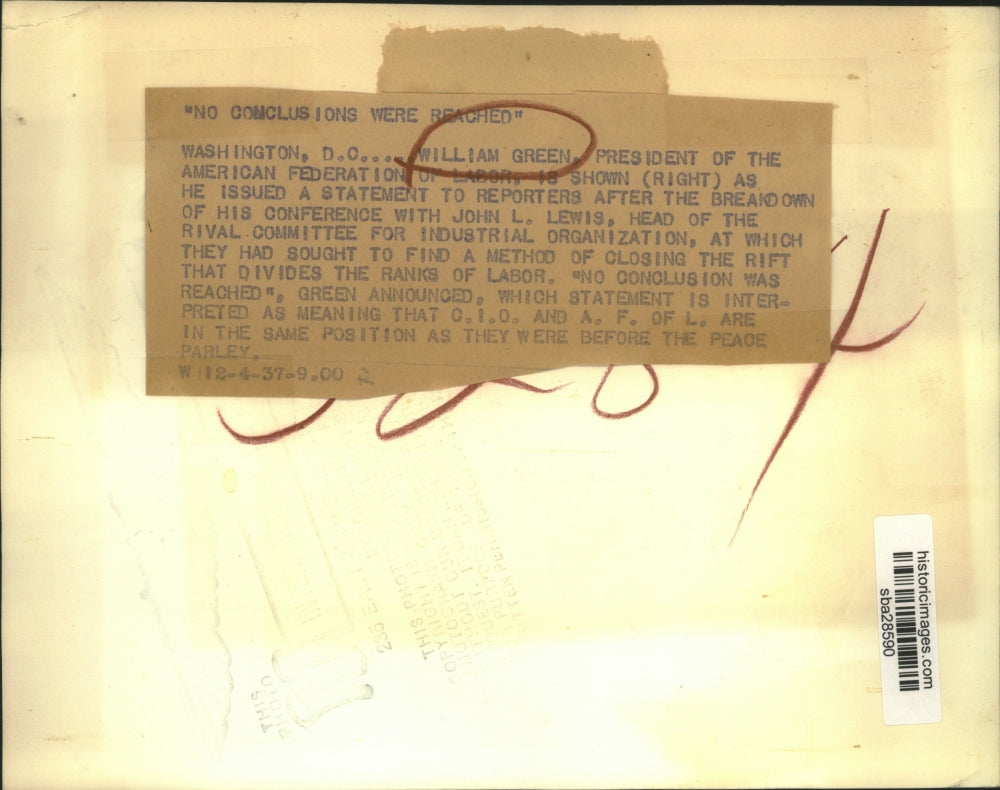 "NO CONCLUSIONS WERE REACHED"
WASHINGTON, D.C.... WILLIAM GREEN, PRESIDENT OF THE
AMERICAN FEDERATION OF LABOR, IS SHOWN (RIGHT) AS
HE ISSUED A STATEMENT TO REPORTERS AFTER THE BREAKDOWN
OF HIS CONFERENCE WITH JOHN L. LEWIS, HEAD OF THE
RIVAL COMMITTEE FOR INDUSTRIAL ORGANIZATION, AT WHICH
THEY HAD SOUGHT TO FIND A METHOD OF CLOSING THE RIFT
THAT DIVIDES THE RANKS OF LABOR. "NO CONCLUSION WAS
REACHED", GREEN ANNOUNCED, WHICH STATEMENT IS INTER-
PRETED AS MEANING THAT C.I.O. AND A. F. OF L. ARE
IN THE SAME POSITION AS THEY WERE BEFORE THE PEACE
PARLEY.
W 12-4-37-9.00
THIS
PHOTO
235 EAST
THIS PHOTO
historicimages.com
sba28590